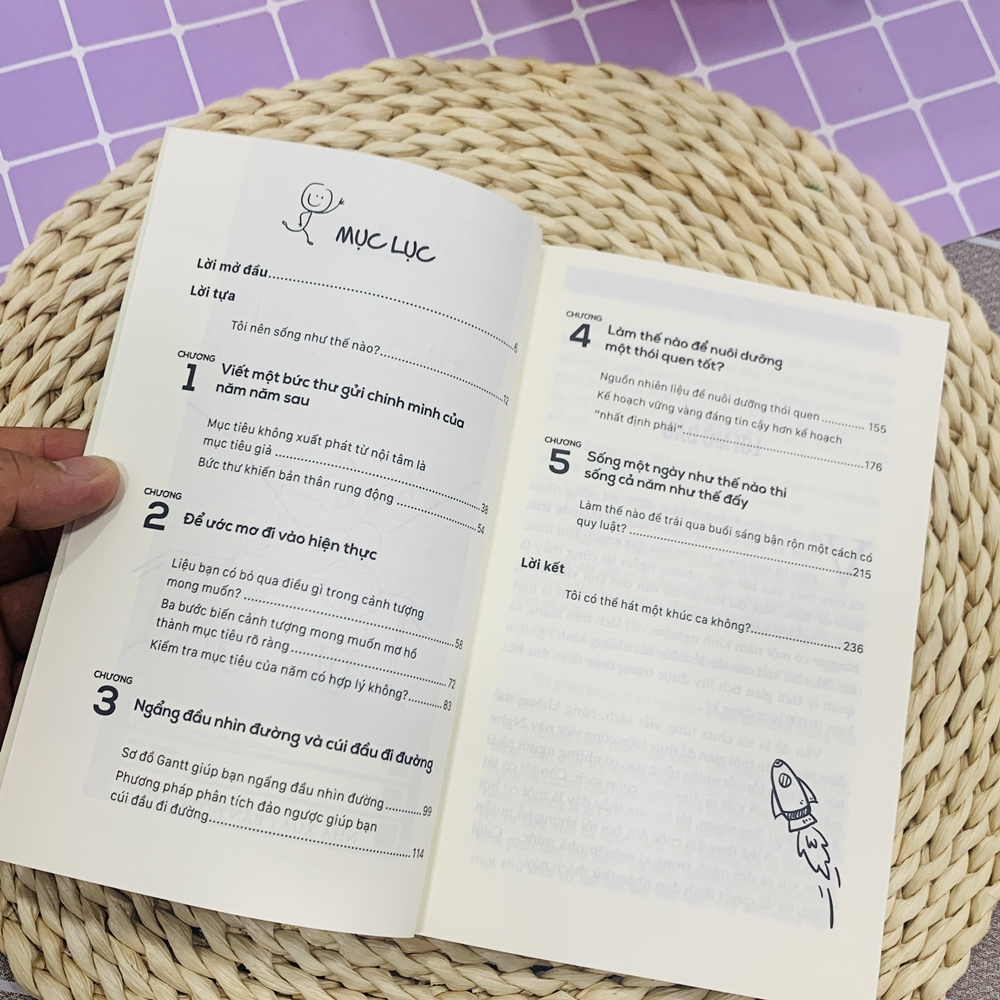 MỤC LỤC
Lời mở đầu........................................6
Lời tựa
Tôi nên sống như thế nào?........................12
CHƯƠNG
1 Viết một bức thư gửi chính mình của
năm năm sau
Mục tiêu không xuất phát từ nội tâm là
mục tiêu giả ........................................38
Bức thư khiến bản thân rung động ....................54
CHƯƠNG
2 Để ước mơ đi vào hiện thực
Liệu bạn có bỏ qua điều gì trong cảnh tượng
mong muốn? ........................................58
Ba bước biến cảnh tượng mong muốn mơ hồ
thành mục tiêu rõ ràng................................72
Kiểm tra mục tiêu của năm có hợp lý không?..........83
CHƯƠNG
3 Ngẩng đầu nhìn đường và cúi đầu đi đường
Sơ đồ Gantt giúp bạn ngẩng đầu nhìn đường ..........99
Phương pháp phân tích đảo ngược giúp bạn
cúi đầu đi đường........................................114
CHƯƠNG
4 Làm thế nào để nuôi dưỡng
một thói quen tốt?
Nguồn nhiên liệu để nuôi dưỡng thói quen ............155
Kế hoạch vững vàng đáng tin cậy hơn kế hoạch
“nhất định phải”........................................176
CHƯƠNG
5 Sống một ngày như thế nào thì
sống cả năm như thế đấy
Làm thế nào để trải qua buổi sáng bận rộn một cách có
quy luật? ........................................215
Lời kết
Tôi có thể hát một khúc ca không?....................236